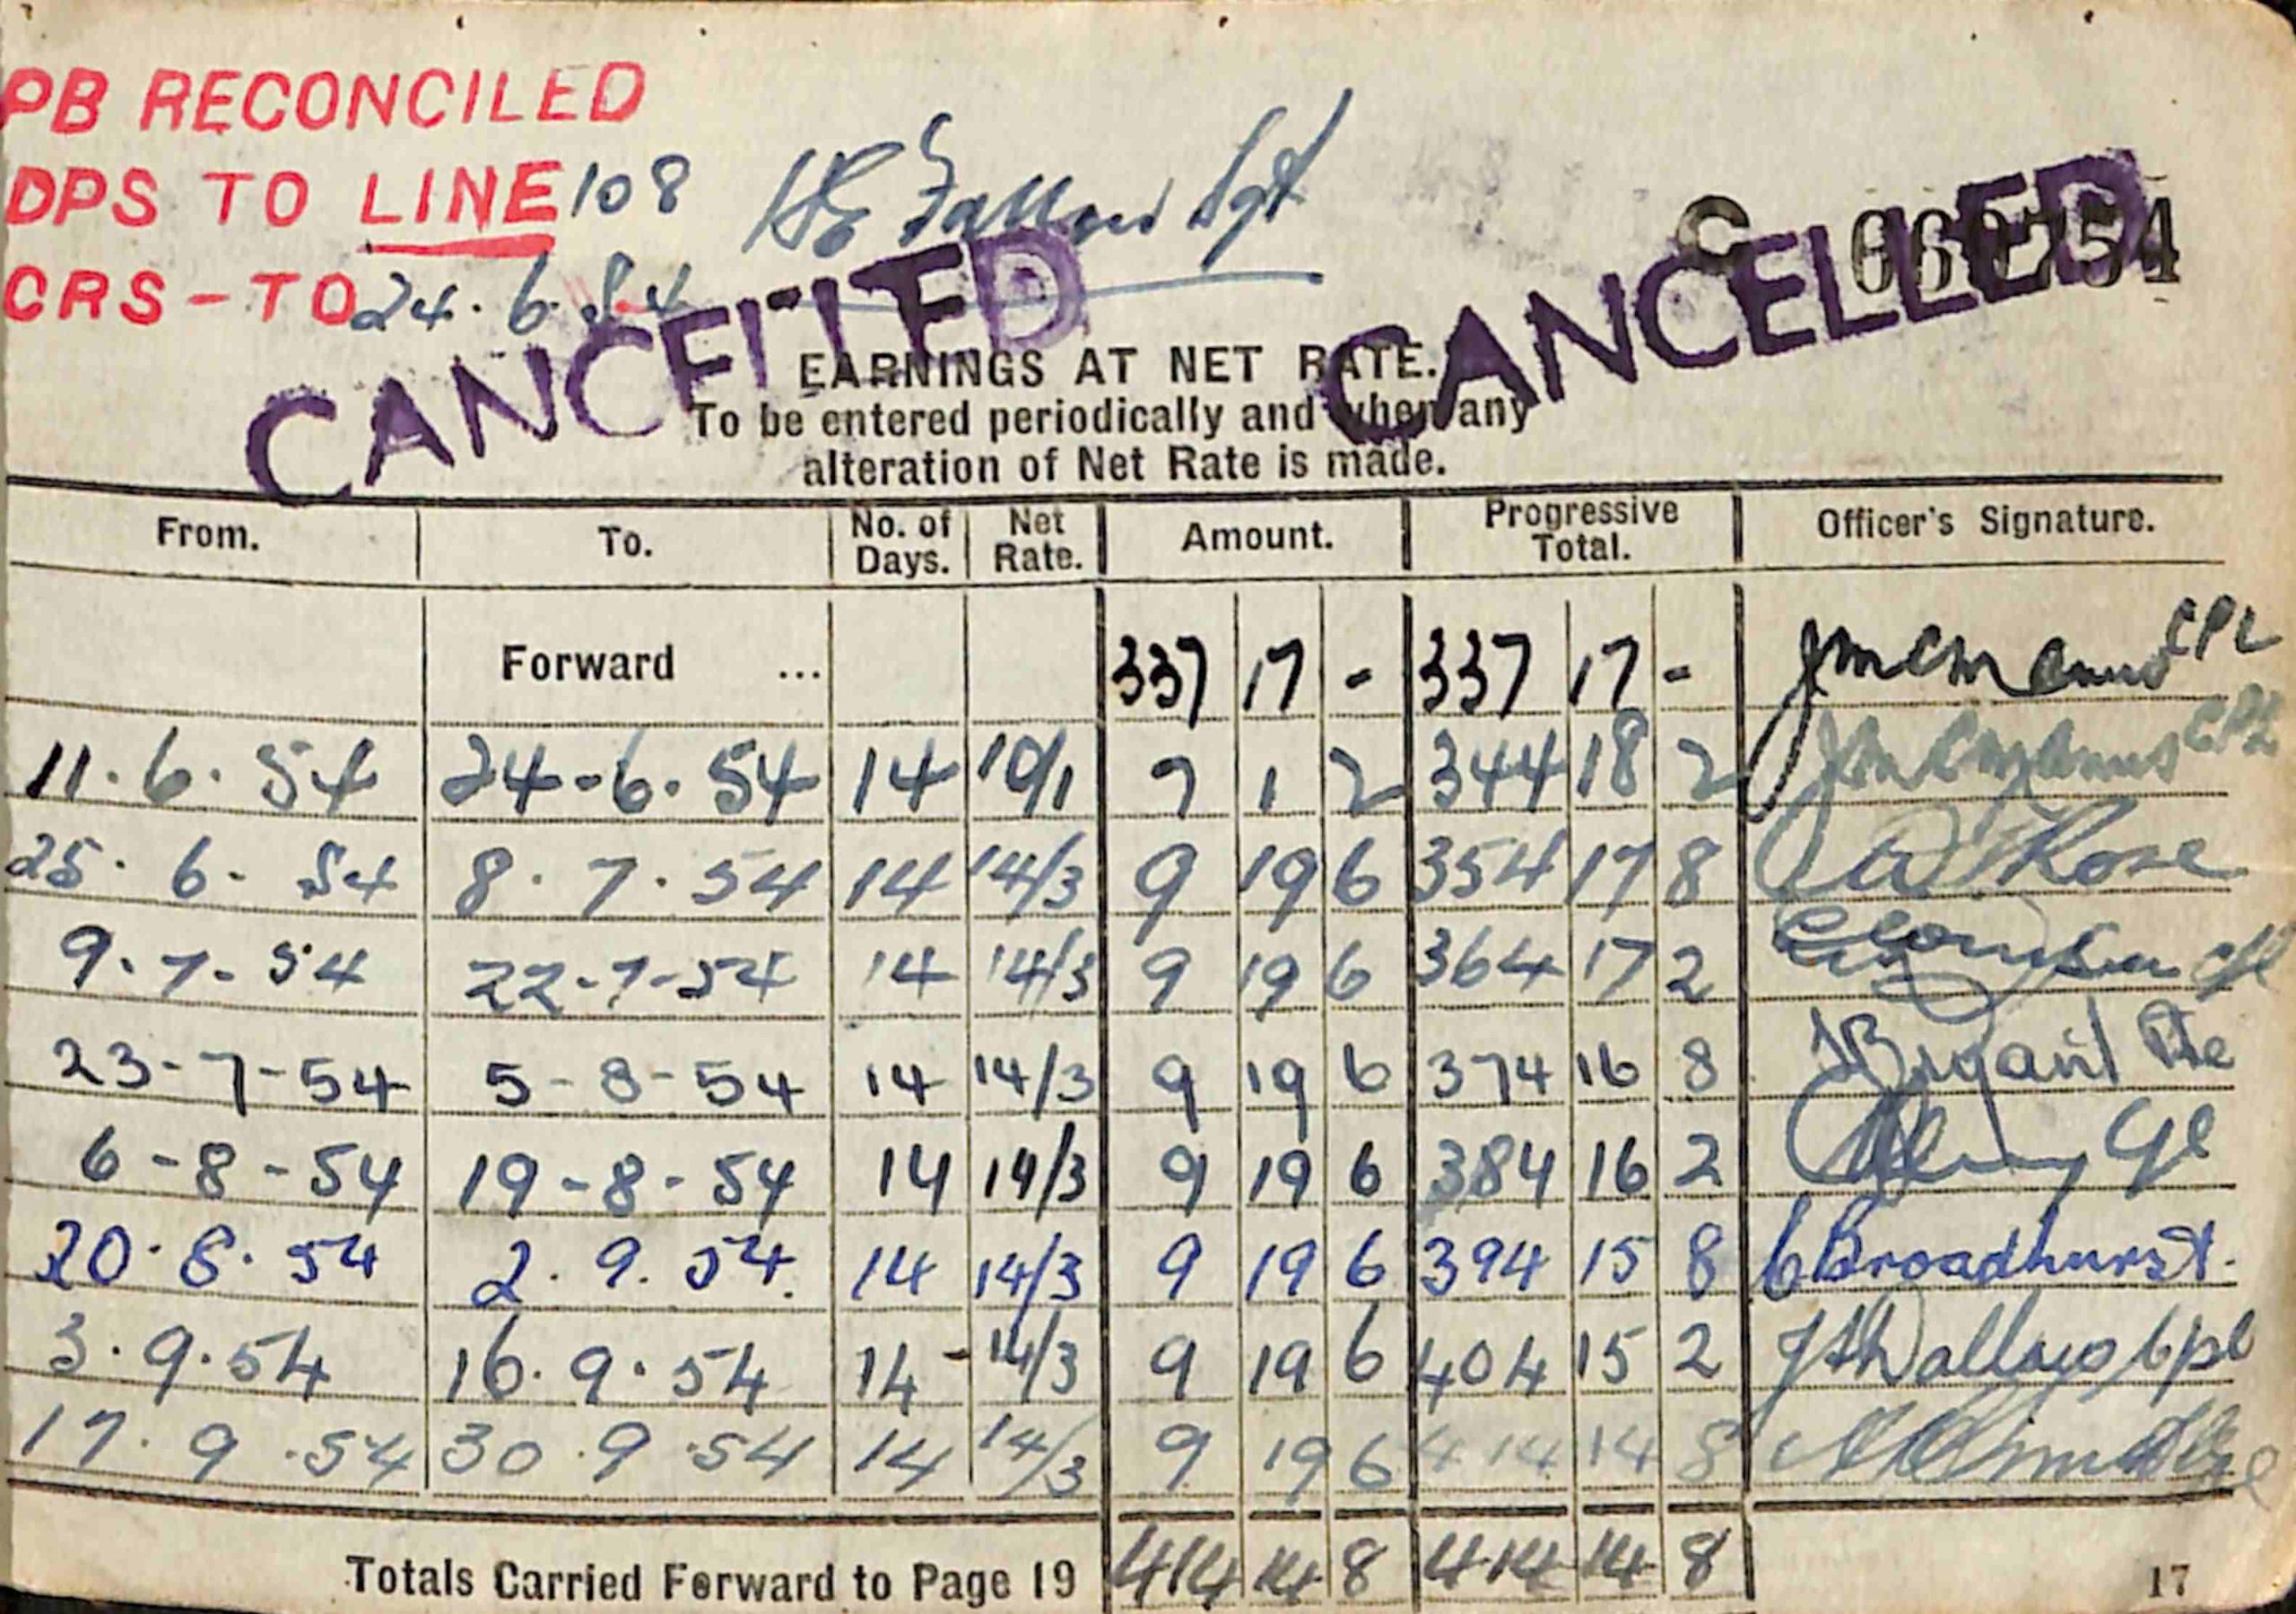 PB RECONCILED
DPS TO LINE 108
CRS - TO 24.6.54
Sgt
CANCELLED
CANCELLED
C
EARNINGS AT NET RATE.
To be entered periodically and when any
alteration of Net Rate is made.
From. To. No. of Days. Net Rate. Amount. Progressive Total. Officer's Signature.
Forward ... 337 17 - 337 17 - CPL
11.6.54 24-6.54 14 10/1 7 1 2 344 18 2 CPL
25.6.54 8.7.54 14 14/3 9 19 6 354 17 8 Rose
9.7.54 22-7-54 14 14/3 9 19 6 364 17 2 Cpl
23-7-54 5-8-54 14 14/3 9 19 6 374 16 8 Bryant Pte
6-8-54 19-8-54 14 14/3 9 19 6 384 16 2
20.8.54 2.9.54. 14 14/3 9 19 6 394 15 8 C Broadhurst.
3.9.54 16.9.54 14 - 14/3 9 19 6 404 15 2 Cpl
17.9.54 30.9.54 14 14/3 9 19 6 414 14 8
Totals Carried Forward to Page 19 414 14 8 414 14 8
17